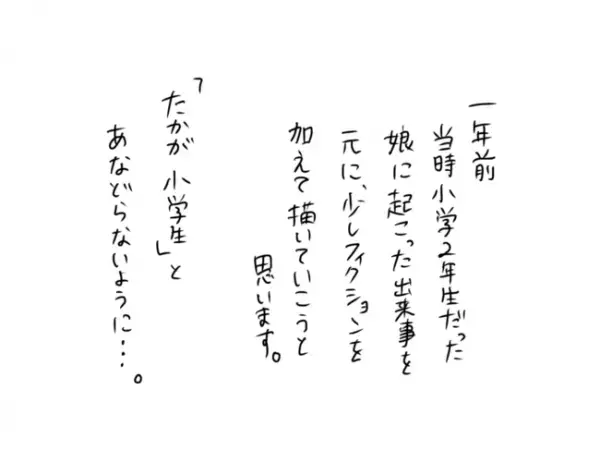 一年前
当時小学2年生だった
娘に起こった出来事を
元に、少しフィクションを
加えて描いていこうと
思います。
「たかが小学生」と
あなどらないように・・・。